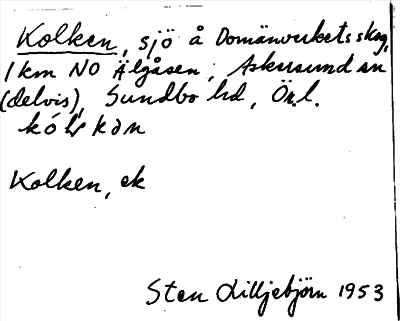 Kolken, sjö å Domänverkets skog,
1 km NO Älgåsen, Askersund sn
(delvis), Sundbo hd, Ör.l.
kólkən
Kolken, ek
Sten Lilljebjörn 1953